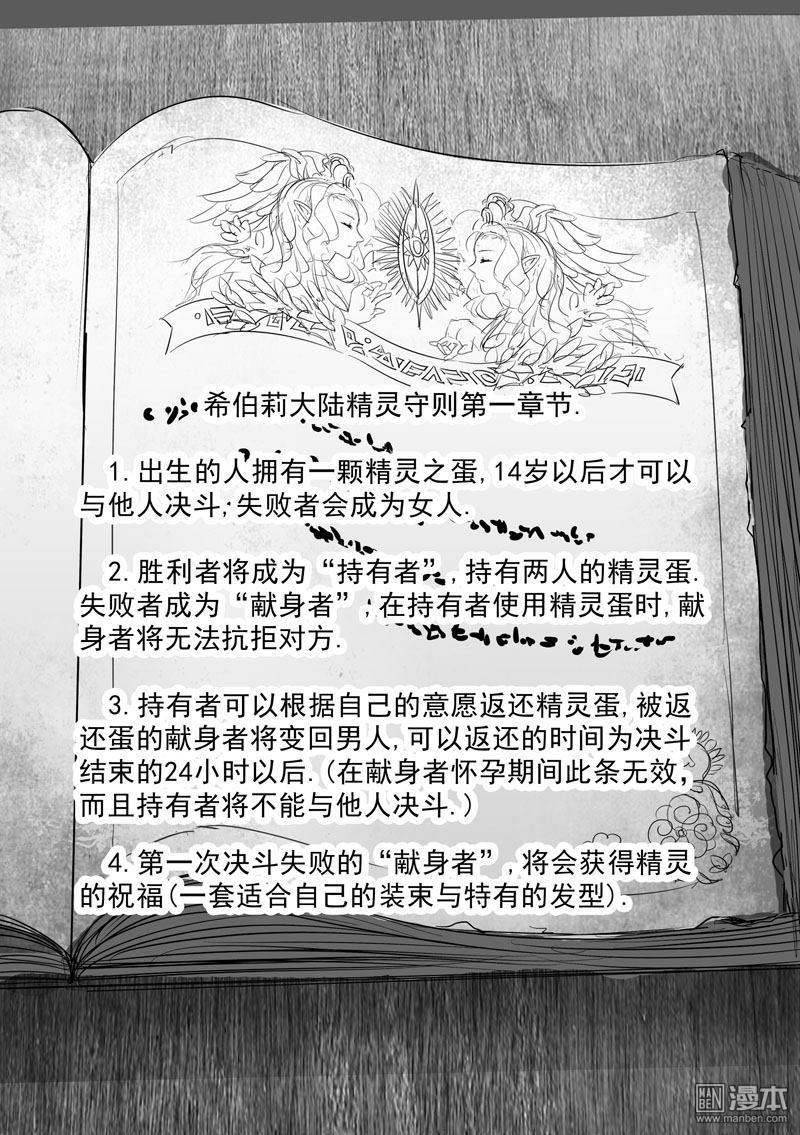 希伯莉大陆精灵守则第一章节.
1.出生的人拥有一颗精灵之蛋,14岁以后才可以
与他人决斗;失败者会成为女人.
2.胜利者将成为“持有者”,持有两人的精灵蛋.
失败者成为“献身者”;在持有者使用精灵蛋时,献
身者将无法抗拒对方.
3.持有者可以根据自己的意愿返还精灵蛋,被返
还蛋的献身者将变回男人,可以返还的时间为决斗
结束的24小时以后.(在献身者怀孕期间此条无效,
而且持有者将不能与他人决斗.)
4.第一次决斗失败的“献身者”,将会获得精灵
的祝福(一套适合自己的装束与特有的发型).
MAN
BEN
漫本
www.manben.com